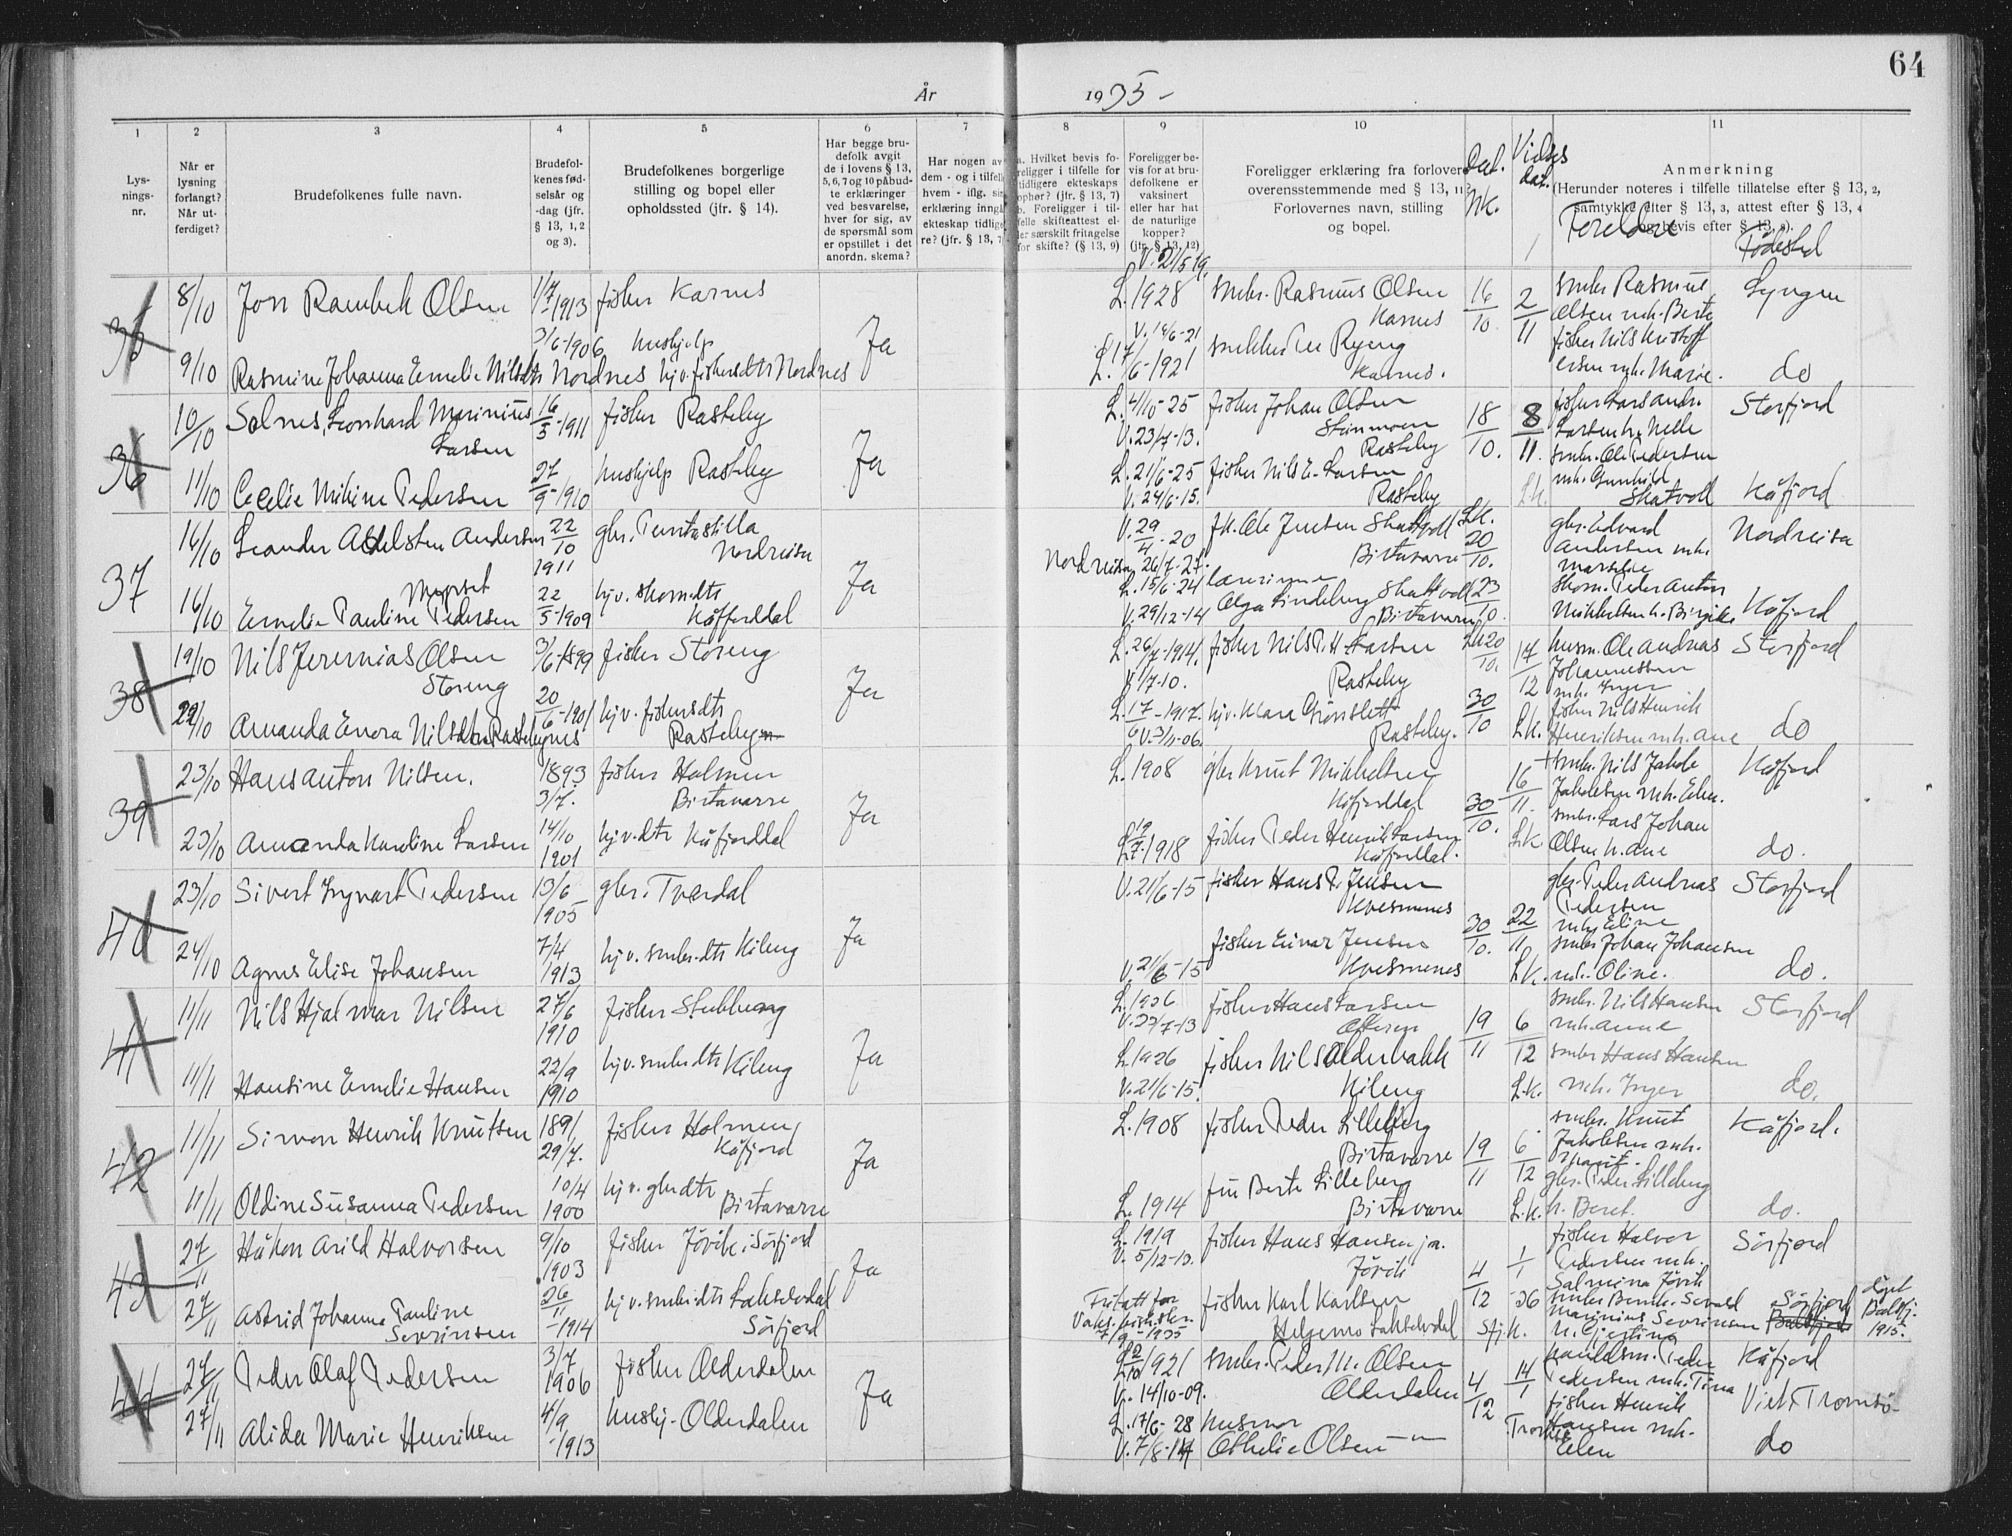 64
År 1935-
1 2 3 4 5 6 7 8 9 10 11
Lys-
nings-
nr.
Når er
lysning
forlangt?
Når ut-
ferdiget?
Brudefolkenes fulle navn.
Brudefol-
kenes fød-
selsår og
-dag (jfr.
§ 13, 1, 2
og 3).
Brudefolkenes borgerlige
stilling og bopel eller
opholdssted (jfr. § 14).
Har begge bru-
defolk avgit
de i lovens § 13,
5, 6, 7 og 10 påbud-
te erklæringer
ved besvarelse,
hver for sig, av
de spørsmål som
er opstillet i det
anordn. skema?
Har nogen av
dem - og i tilfelle
hvem - iflg. sin
erklæring inngå
ekteskap tidlige
re? (jfr. § 13, 7
a. Hvilket bevis fo-
religger i tilfelle for
tidligere ekteskaps
ophør? (jfr. § 13, 7)
b. Foreligger i til-
felle skifteattest el-
ler særskilt fritagelse
for skifte? (§ 13, 9)
Foreligger be-
vis for at bru-
defolkene er
vaksinert
eller har hat
de naturlige
kopper?
(jfr. § 13, 12)
Foreligger erklæring fra forlovere
overensstemmende med § 13, 11?
Forlovernes navn, stilling
og bopel.
Vielses
dat.
Anmerkning
(Herunder noteres i tilfelle tillatelse efter § 13, 2,
samtykke efter § 13, 3, attest efter § 13, 4
og bevis efter § 13, 8).
Foreldre
Fødested
35 8/10 Jon Rambek Olsen 1/7-1913 fisker Karnes Ja V. 21/5 19. L. 1928 smbr. Rasmus Olsen Karnes 16/10. 2/11 smbr Rasmus Olsen mh. Berte Lyngen
9/10 Rasmine Johanna Emelie Nilsdtr Nordnes 3/6-1906 hushjelp hjv. fiskersdtr Nordnes V. 14/6-21 L. 17/6-1921 snekker Karnes. fisker Nils Kristoffersen mh. Marie. do
36 10/10 Solnes, Leonhard Marinius Larsen 16/5-1911 fisker Rasteby Ja L. 4/10-25 V. 23/7-13. fisker Johan Olsen Steinmoen Rasteby 18/10. 8/11. fisker Lars Andr. Larsen h. Nelle Storfjord
11/10 Cecelie Mikine Pedersen 27/9-1910 hushjelp Rasteby L. 21/6-25 V. 24/6-15. fisker Nils E. Larsen Rasteby L.k. smbr. Ole Pedersen mh. Gunhild Skatvoll Kåfjord
37 16/10 Leander Adelsten Andersen 22/10 1911 gbr. Nordreisa Ja V. 29/4-20 Nordreisa 26/7-27. fh. Ole Jensen Skattvoll Birtavarre L.k. 20/10. gbr. Edvard Andersen mh. Marselie Nordreisa
16/10 Emelie Pauline Pedersen 22/5-1909 hjv. skom.dtr Kåfjorddal L. 15/6-24 V. 29/12-14 lærerinne Olga Lindeberg Skattvoll Birtavarre 23/10. skom. Peder Anton Mikkelsen h. Birgitte Kåfjord
38 19/10 Nils Jeremias Olsen Storeng 3/6-1899 fisker Storeng Ja L. 26/7-1914. V. 17-10. fisker Nils P. H. Larsen Rasteby L.k. 20/10. 17/12 husm. Ole Andreas Johannessen mh. Inger Storfjord
22/10 Amanda Enora Nilsdtr Rastebynes 20/6-1901 hjv. fiskersdtr Rasteby L. 17/6-1917. V. 3/11-06. hjv. Klara Grønslett Rasteby. 30/10 L.k. fisker Nils Henrik Henriksen mh. Ane do
39 23/10 Hans Anton Nilsen. 1893 3/7. fisker Holmen Birtavarre Ja L. 1908 gbr Knut Mikkelsen Kåfjorddal 30/10. 16/11. smbr. Nils Jakob Jakobsen mh. Elen. Kåfjord
23/10 Amanda Karoline Larsen 14/10 1901 hjv.dtr Kåfjorddal L. 19/7-1918 fisker Peder Henrik Larsen Kåfjorddal. L.k. smbr. Lars Johan Olsen h. Ane do.
40 23/10 Sivert Ingvart Pedersen 13/6 1905 gbr. Tverdal Ja V. 21/6-15 fisker Hans P. Jensen Kvesmenes 30/10. 22/11 gbr. Peder Andreas Pedersen mh. Eline Storfjord
24/10 Agnes Elise Johansen 7/4 1913 hjv. smbr.dtr Kileng V. 21/6-15 fisker Einar Jensen Kvesmenes L.k. smbr Johan Johansen mh. Oline. do.
41 11/11 Nils Hjalmar Nilsen 27/6 1910 fisker Stubbeng Ja L. 1926 V. 23/7-13 fisker Hans Larsen Ofteren 19/11 6/12 smbr. Nils Hansen mh. Anne Storfjord
11/11 Hansine Emelie Hansen 22/9 1910 hjv. smbrdtr Kileng L. 1926 V. 21/6-15. fisker Nils Olderbakk Kileng L.k. smbr Hans Hansen mh. Inger do.
42 11/11 Simon Henrik Knutsen 1891 29/7. fisker Holmen Kåfjord Ja L. 1908 fisker Peder Lilleberg Birtavarre 19/11 6/12 smbr. Knut Jakobsen mh. Kåfjord.
11/11 Oldine Susanna Pedersen 10/4 1900 hjv. gbrdtr Birtavarre L. 1914 fru Berte Lilleberg Birtavarre L.k. gbr. Peder Lilleberg h. Beret. do.
43 27/11 Håkon Arild Halvorsen 9/10 1903 fisker Jøvik i Sørfjord Ja L. 1919 V. 5/12-13. fisker Hans Hansen jr. Jøvik 4/12 1/1-36 fisker Halvor Pedersen mh. Salmina Jøvik Sørfjord
27/11 Astrid Johanna Pauline Sevrinsen 26/11-1914 hjv. smbr.dtr Lakselvdal Sørfjord Fritatt for vaks. 7/9-1935 fisker Karl Karlsen Helgemo Lakselvdal Sfj.k. smbr Bernh. Sevald Marinius Sevrinsen h. Gjertine Sørfjord Balsfjord døpt Balsfj. 1915.
44 27/11 Peder Olaf Pedersen 3/7 1906 fisker Olderdalen Ja L. 2/10 1921 V. 14/10-09. smbr. Peder M. Olsen Olderdalen 4/12 14/1 Peder Pedersen mh. Tina Kåfjord Viet i Tromsø
27/11 Alida Marie Henriksen 4/9-1913 hushj. Olderdalen L. 17/6-28 V. 7/8-14 husmor Othelie Olsen -"- Tromsø fisker Henrik Hansen mh. Elen do